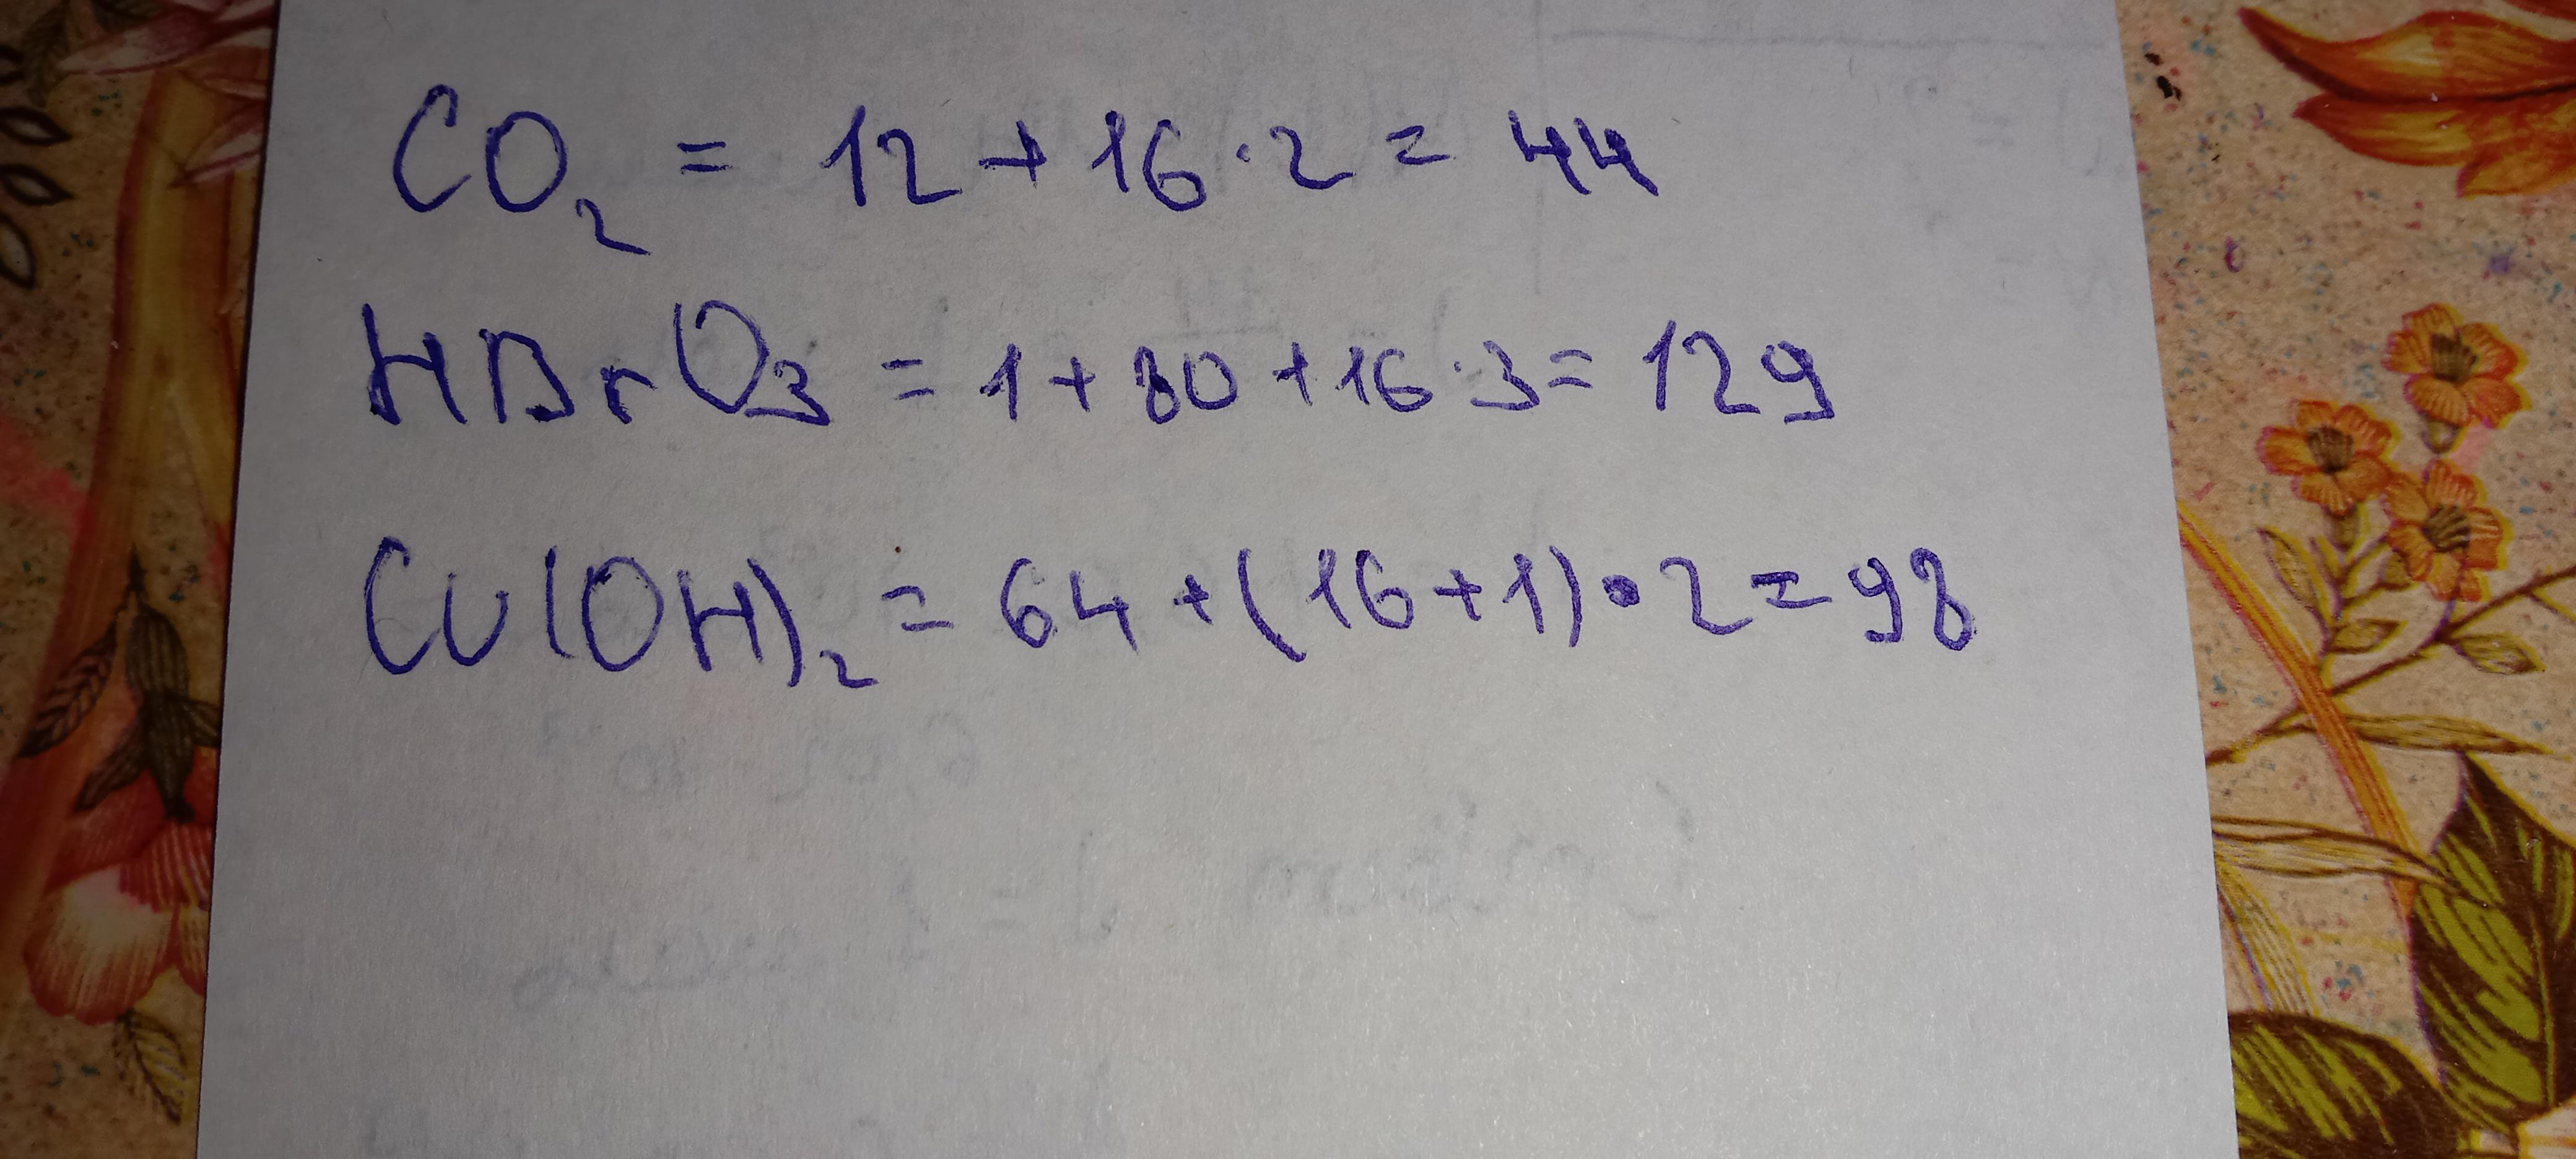 CO₂ = 12 + 16 · 2 = 44
HBrO₃ = 1 + 80 + 16 · 3 = 129
Cu(OH)₂ = 64 + (16 + 1) · 2 = 98